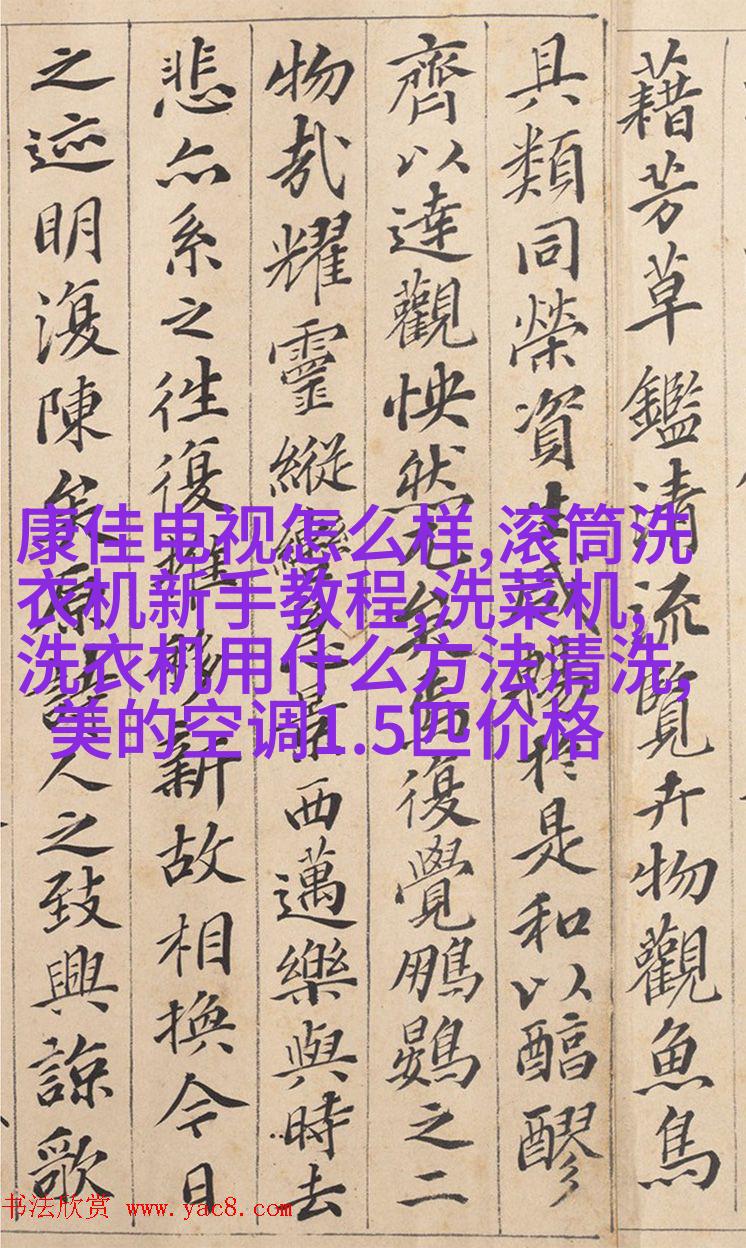 藉芳草鑑清流覽卉物觀魚鳥
具類同榮資生咸暢於是和以醕醪
齊以達觀怏然兀矣焉復覺鵬鷃之二
物哉耀靈縱轡急景西邁樂與時去
悲亦系之往復推移新故相換今日
之迹明復陳矣原詩人之致興諒歌
康佳电视怎么样,滚筒洗
衣机新手教程,洗菜机,
洗衣机用什么方法清洗,
美的空调1.5匹价格
书法欣赏 www.yac8.com